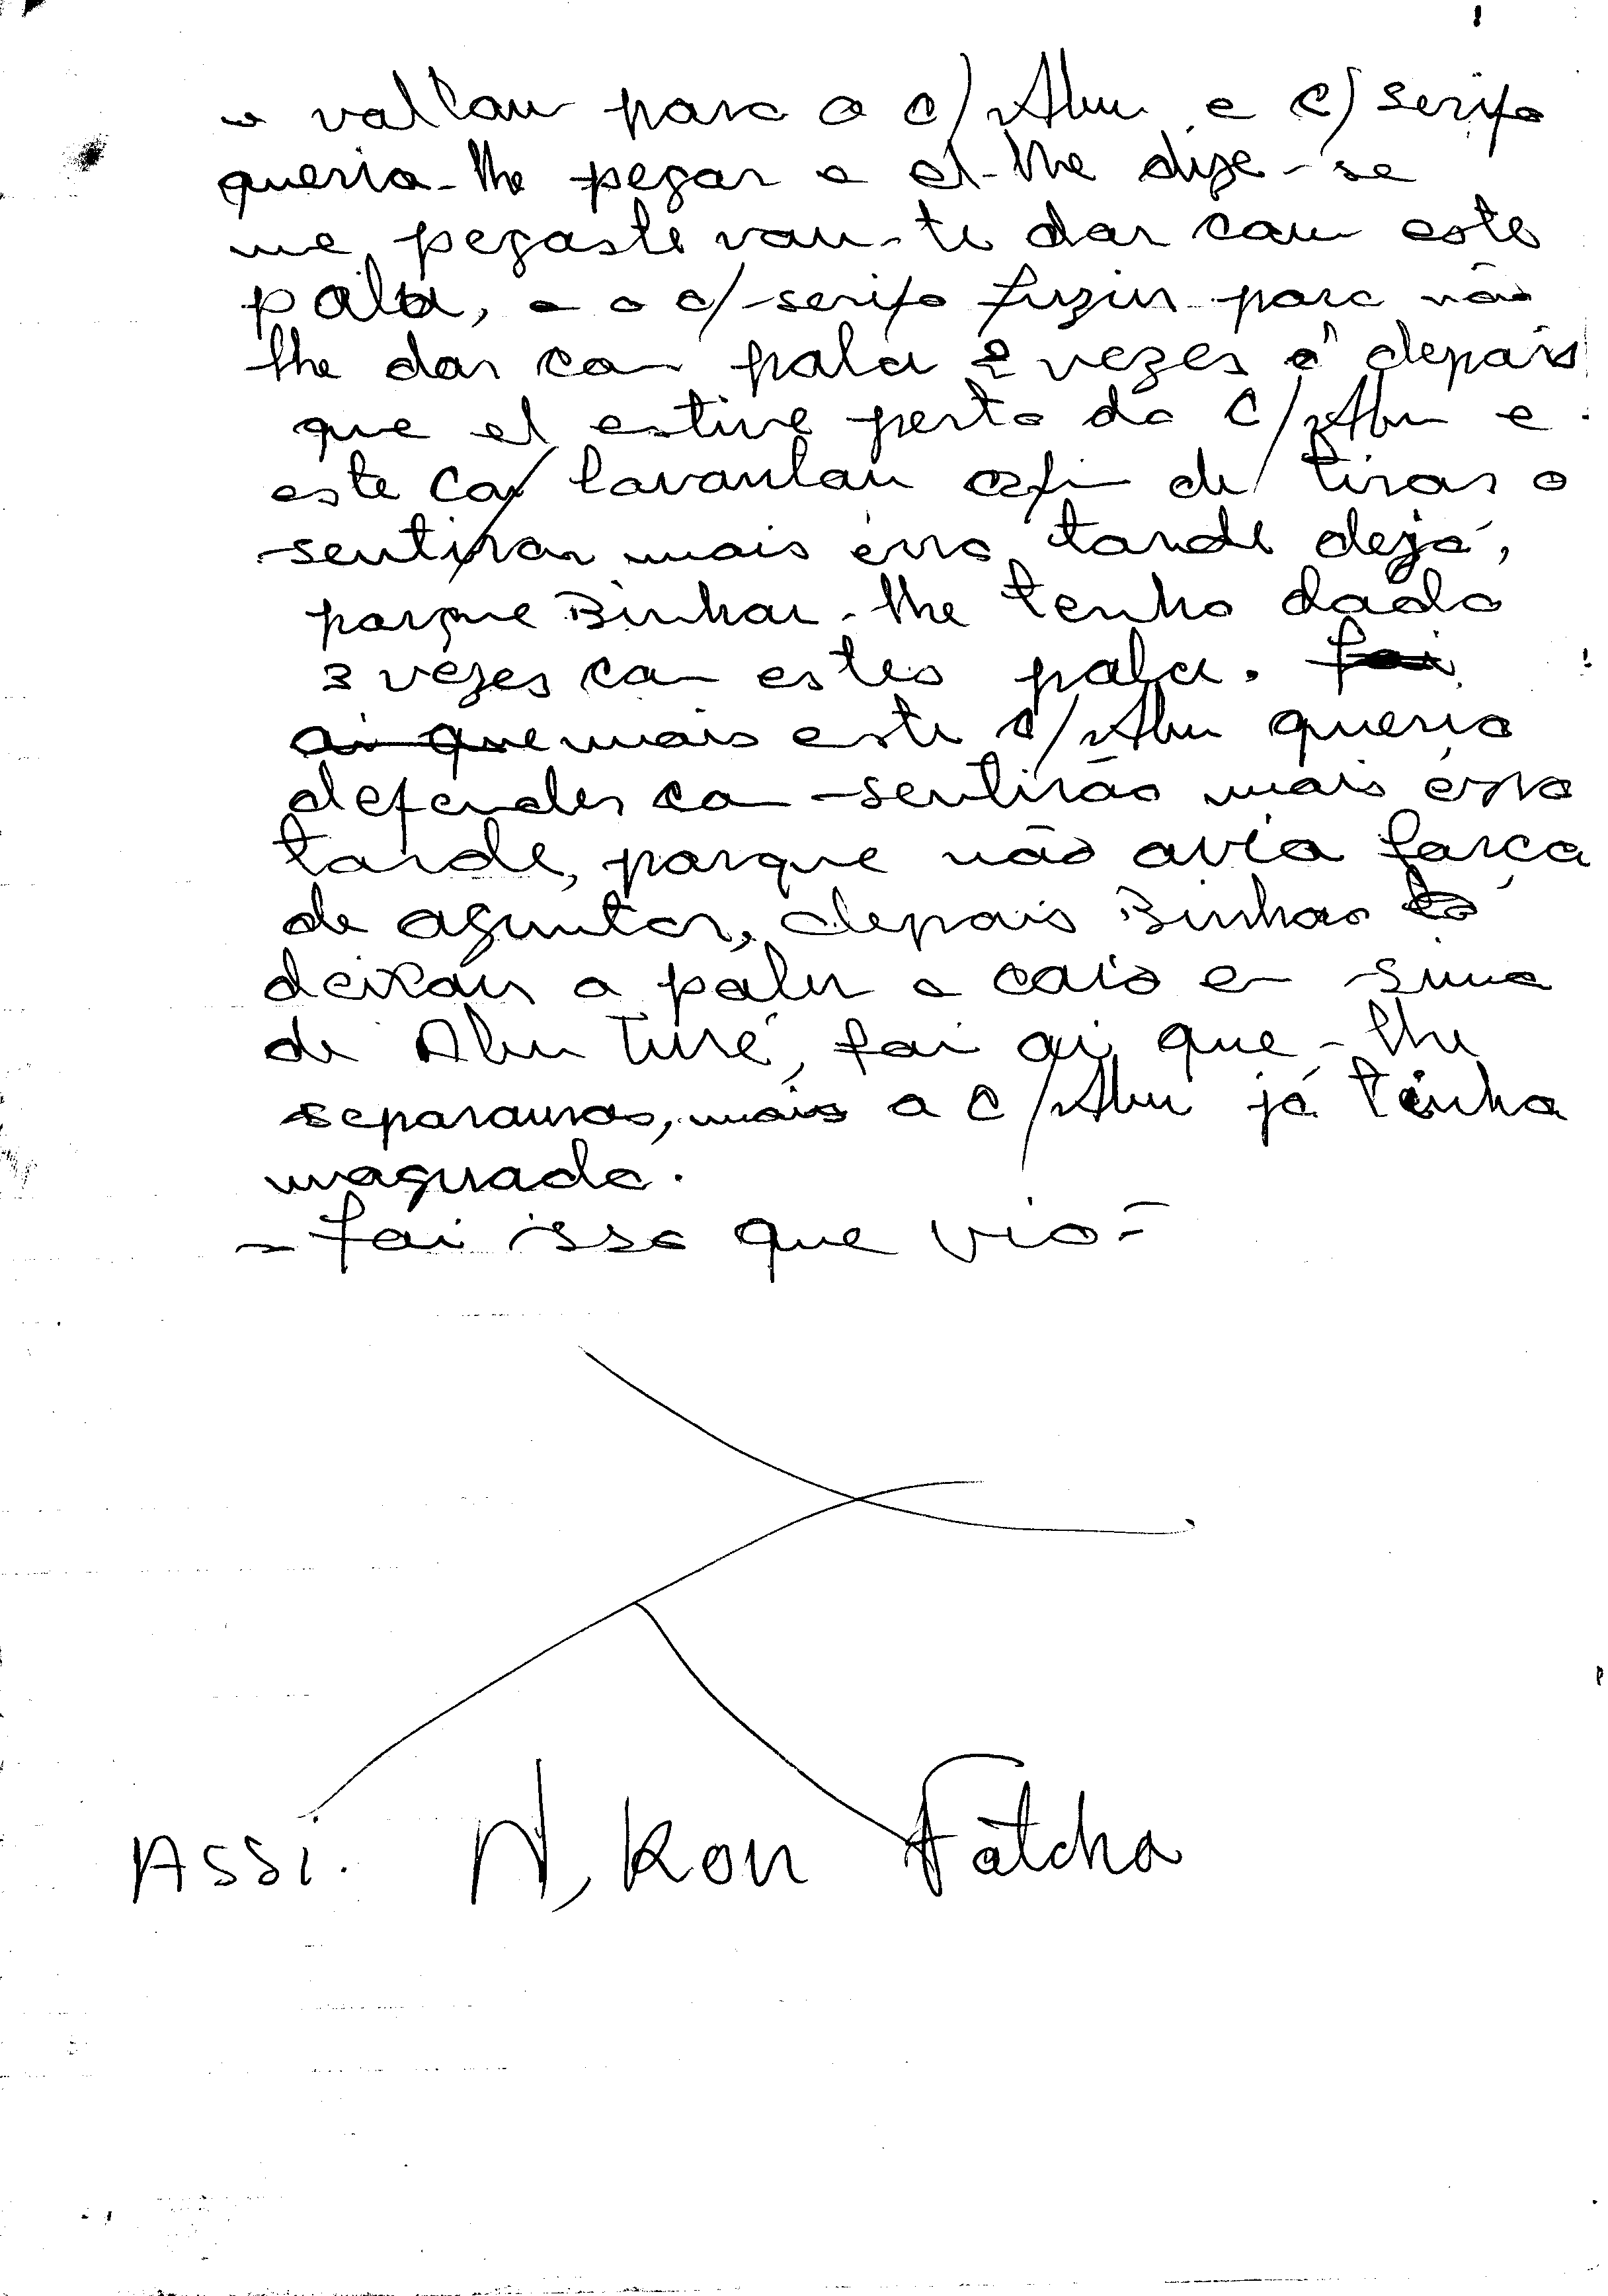 e valtau para o c/Abu e c/serifo
queria-lhe pegar e el-lhe dize-se
me pegaste vau-te dar cam este
palu, e o c/serifo fuziu para não
lhe dar cam palu 2 vezes e depais
que el estive perto do c/Abu e
este ca/ lavantau afi de tirar o
sentiran mais erra tarde deja,
parque Binhau-lhe tenho dado
3 vezes cam estes palu. foi
ai que mais este c/Abu queria
defender cam sentirão mais erra
tarde, parque não avia farça
de aguntar, depais Binhao
deixau a palu a caio em sima
de Abu Turé, fai ai que-lhe
separamos, mais a c/Abu já tinha
maguado.
- fai isso que vio-
Assi. N, Kon Fátcha